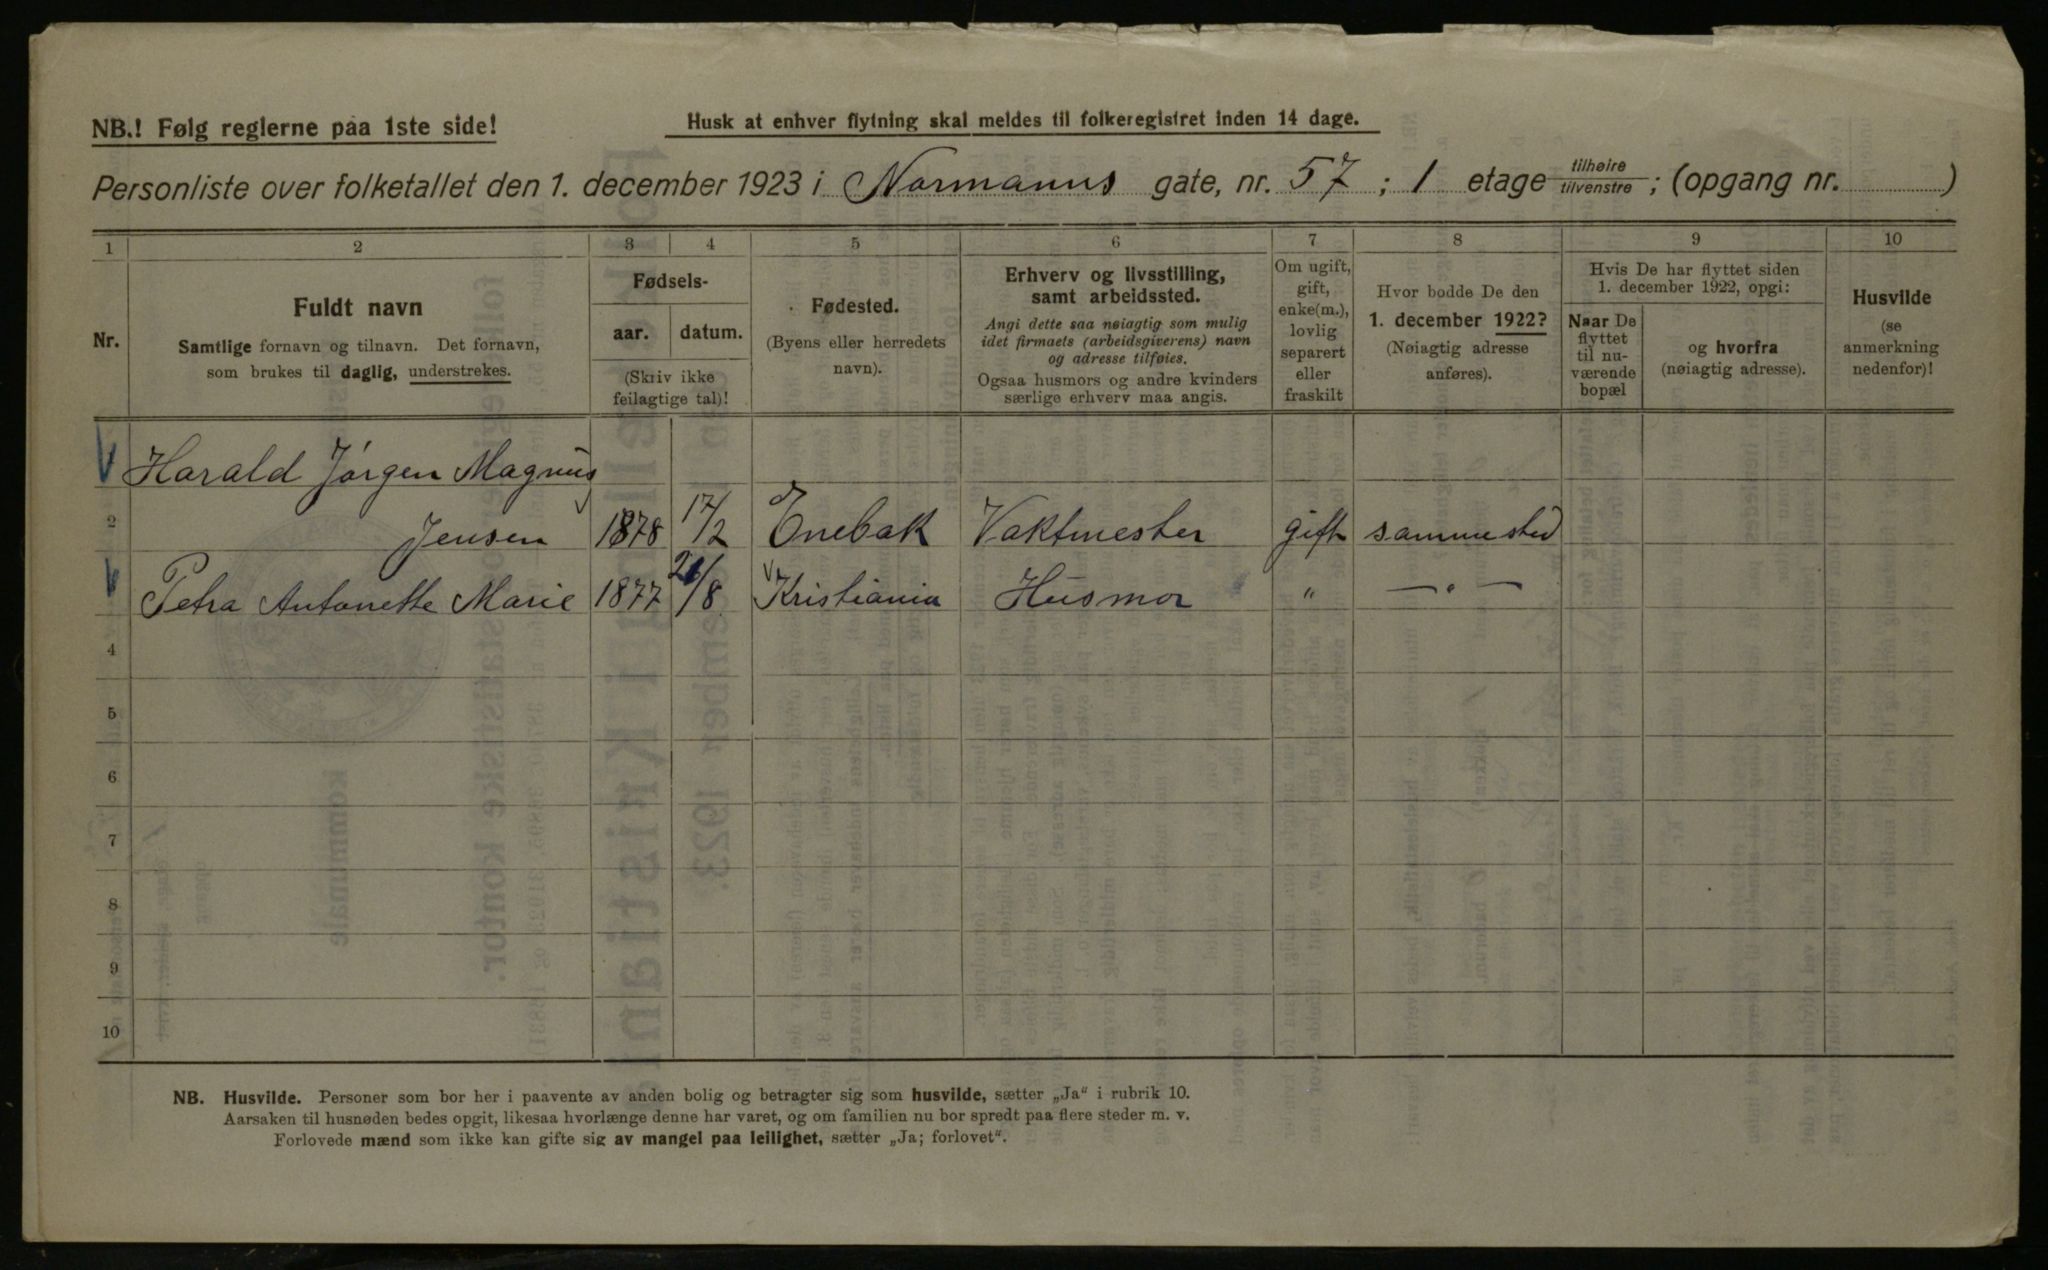 NB.! Følg reglerne paa 1ste side!
Husk at enhver flytning skal meldes til folkeregistret inden 14 dage.
Personliste over folketallet den 1. december 1923 i Normanns gate, nr. 57 ; 1 etage tilhøire tilvenstre ; (opgang nr. )
1 2 3 4 5 6 7 8 9 10
Nr.
Fuldt navn
Samtlige fornavn og tilnavn. Det fornavn,
som brukes til daglig, understrekes.
Fødsels-
aar. datum.
(Skriv ikke
feilagtige tal)!
Fødested.
(Byens eller herredets
navn).
Erhverv og livsstilling,
samt arbeidssted.
Angi dette saa nøiagtig som mulig
idet firmaets (arbeidsgiverens) navn
og adresse tilføies.
Ogsaa husmors og andre kvinders
særlige erhverv maa angis.
Om ugift,
gift,
enke(m.),
lovlig
separert
eller
fraskilt
Hvor bodde De den
1. december 1922?
(Nøiagtig adresse
anføres).
Hvis De har flyttet siden
1. december 1922, opgi:
Naar De
flyttet
til nu-
værende
bopæl
og hvorfra
(nøiagtig adresse).
Husvilde
(se
anmerkning
nedenfor)!
Harald Jørgen Magnus
2 Jensen 1878 17/2 Enebak Vaktmester gift sammested
Petra Antonette Marie 1877 21/8 Kristiania Husmor " — " —
4
5
6
7
8
9
10
NB. Husvilde. Personer som bor her i paavente av anden bolig og betragter sig som husvilde, sætter „Ja" i rubrik 10.
Aarsaken til husnøden bedes opgit, likesaa hvorlænge denne har varet, og om familien nu bor spredt paa flere steder m. v.
Forlovede mænd som ikke kan gifte sig av mangel paa leilighet, sætter „Ja; forlovet".